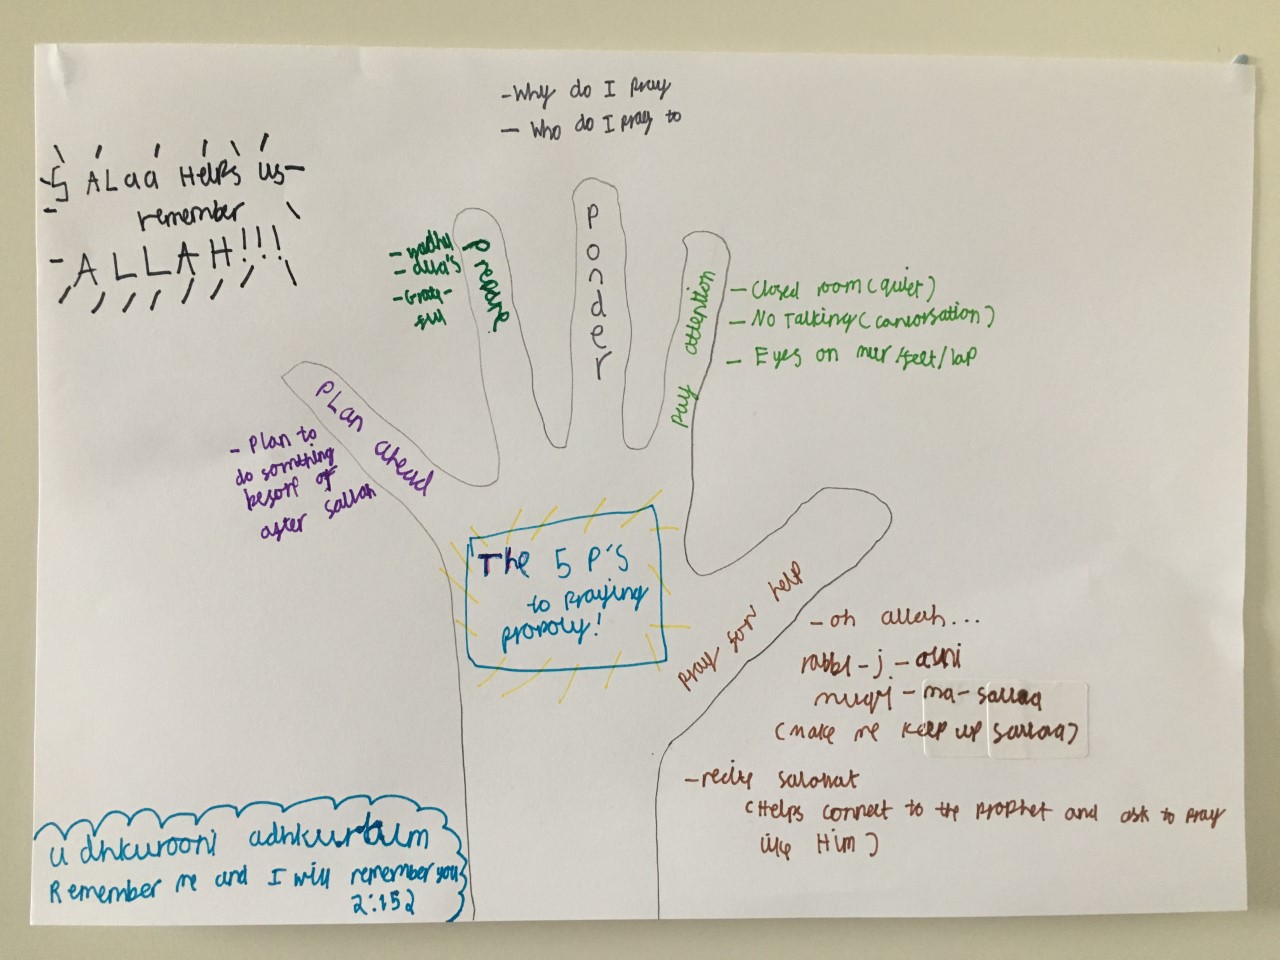 - Why do I pray
- Who do I pray to
SALaa Helps us
remember
ALLAH!!!
Ponder
Prepare
- wadhu
- dua's
- Grate-
ful
Pay attention
- Closed room (quiet)
- No Talking (canvorsation)
- Eyes on mur/feet/lap
Plan ahead
- Plan to
do something
after sallah
The 5 P's
to praying
proporly!
Pray for help
- oh allah...
rabbi-j-alni
muqy-ma-sallaa
(make me keep up sallaa)
- recite salawat
(Helps connect to the prophet and ask to pray
like Him)
udhkurooni adhkurkum
Remember me and I will remember you
2:152